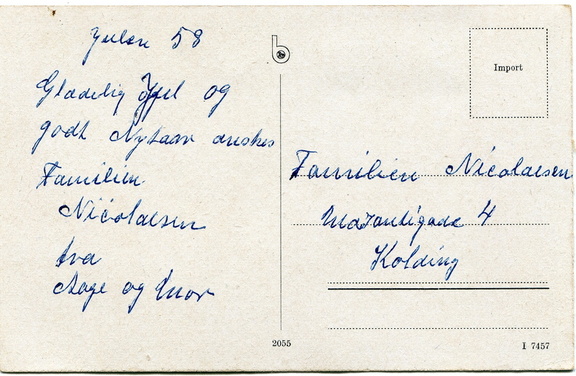 Julen 58
Glædelig Jul og
godt Nytaar ønskes
Familien
Nicolaisen
fra
Aage og Mor
b
Import
Familien Nicolaisen
4
Kolding
2055
I 7457